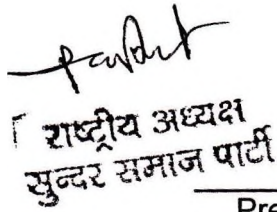 राष्ट्रीय अध्यक्ष
सुन्दर समाज पार्टी
Pre